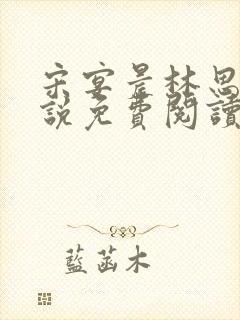 宋宴景林思
說免費閱讀
藍菡木